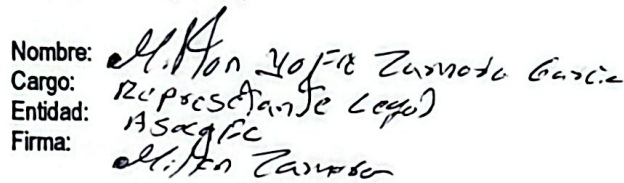 Nombre: Milton Yofre Zamora Garcia
Cargo: Represetante Legal
Entidad:
Firma: Milton Zamora